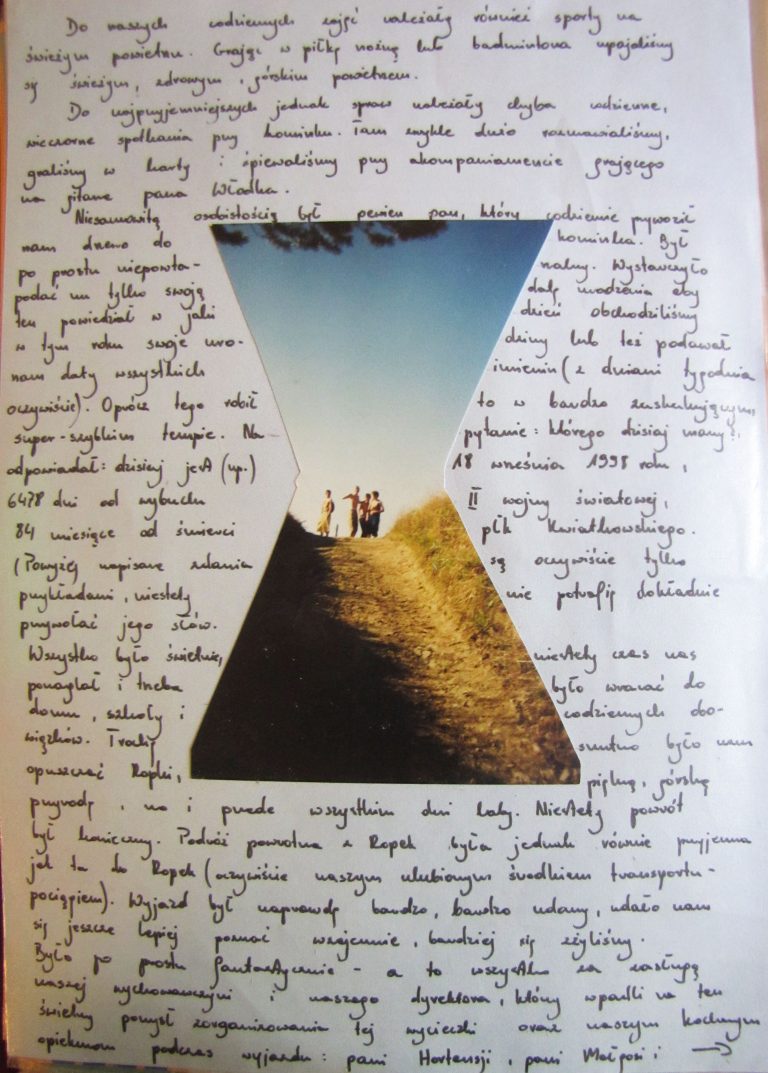 Do naszych codziennych zajęć należały również sporty na
świeżym powietrzu. Grając w piłkę nożną lub badmintona upajaliśmy
się świeżym, zdrowym, górskim powietrzem.
Do najprzyjemniejszych jednak spraw należały chyba codzienne,
wieczorne spotkania przy kominku. Tam zwykle dużo rozmawialiśmy,
graliśmy w karty i śpiewaliśmy przy akompaniamencie grającego
na gitarze pana Władka.
Niesamowitą osobistością był pewien pan, który codziennie przywoził
nam drewno do kominka. Był
po prostu niepowta- rzalny. Wystarczyło
podać mu tylko swoją datę urodzenia aby
ten powiedział w jaki dzień obchodziliśmy
w tym roku swoje uro- dziny lub też podawał
nam daty wszystkich imienin (z dniami tygodnia
oczywiście). Oprócz tego robił to w bardzo zaskakującym,
super-szybkim tempie. Na pytanie: którego dzisiaj mamy?,
odpowiadał: dzisiaj jest (np.) 18 września 1998 roku,
6478 dni od wybuchu II wojny światowej,
84 miesiące od śmierci płk Kwiatkowskiego.
(Powyżej napisane zdania są oczywiście tylko
przykładami, niestety nie potrafię dokładnie
przywołać jego słów.
Wszystko było świetnie, niestety czas nas
ponaglał i trzeba było wracać do
domu, szkoły i codziennych obo-
wiązków. Trochę smutno było nam
opuszczać Ropki, piękną, górską
przyrodę, no i przede wszystkim dni laby. Niestety powrót
był konieczny. Podróż powrotna z Ropek była jednak równie przyjemna
jak ta do Ropek (oczywiście naszym ulubionym środkiem transportu -
pociągiem). Wyjazd był naprawdę bardzo, bardzo udany, udało nam
się jeszcze lepiej poznać wzajemnie, bardziej się zżyliśmy.
Było po prostu fantastycznie - a to wszystko za zasługą
naszej wychowawczyni i naszego dyrektora, którzy wpadli na ten
świetny pomysł zorganizowania tej wycieczki oraz naszym kochanym
opiekunom podczas wyjazdu: pani Hortensji, pani Małgosi i →